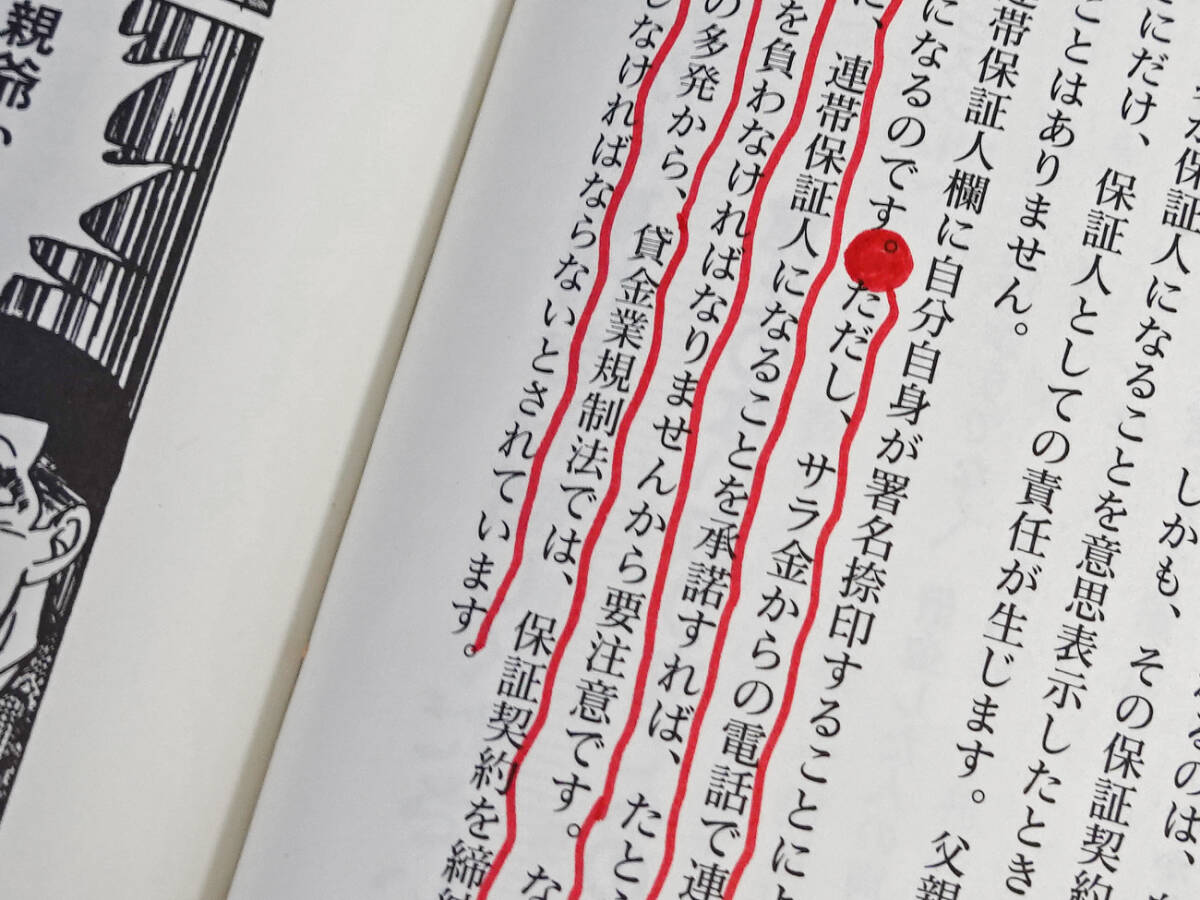 るのは、
しかも、その保証契約
が保証人になることを意思表示したとき
にだけ、保証人としての責任が生じます。父親
ことはありません。
連帯保証人欄に自分自身が署名捺印することに
になるのです。ただし、サラ金からの電話で連
に、連帯保証人になることを承諾すれば、たと
を負わなければなりませんから要注意です。な
の多発から、貸金業規制法では、保証契約を締
しなければならないとされています。
親爺、